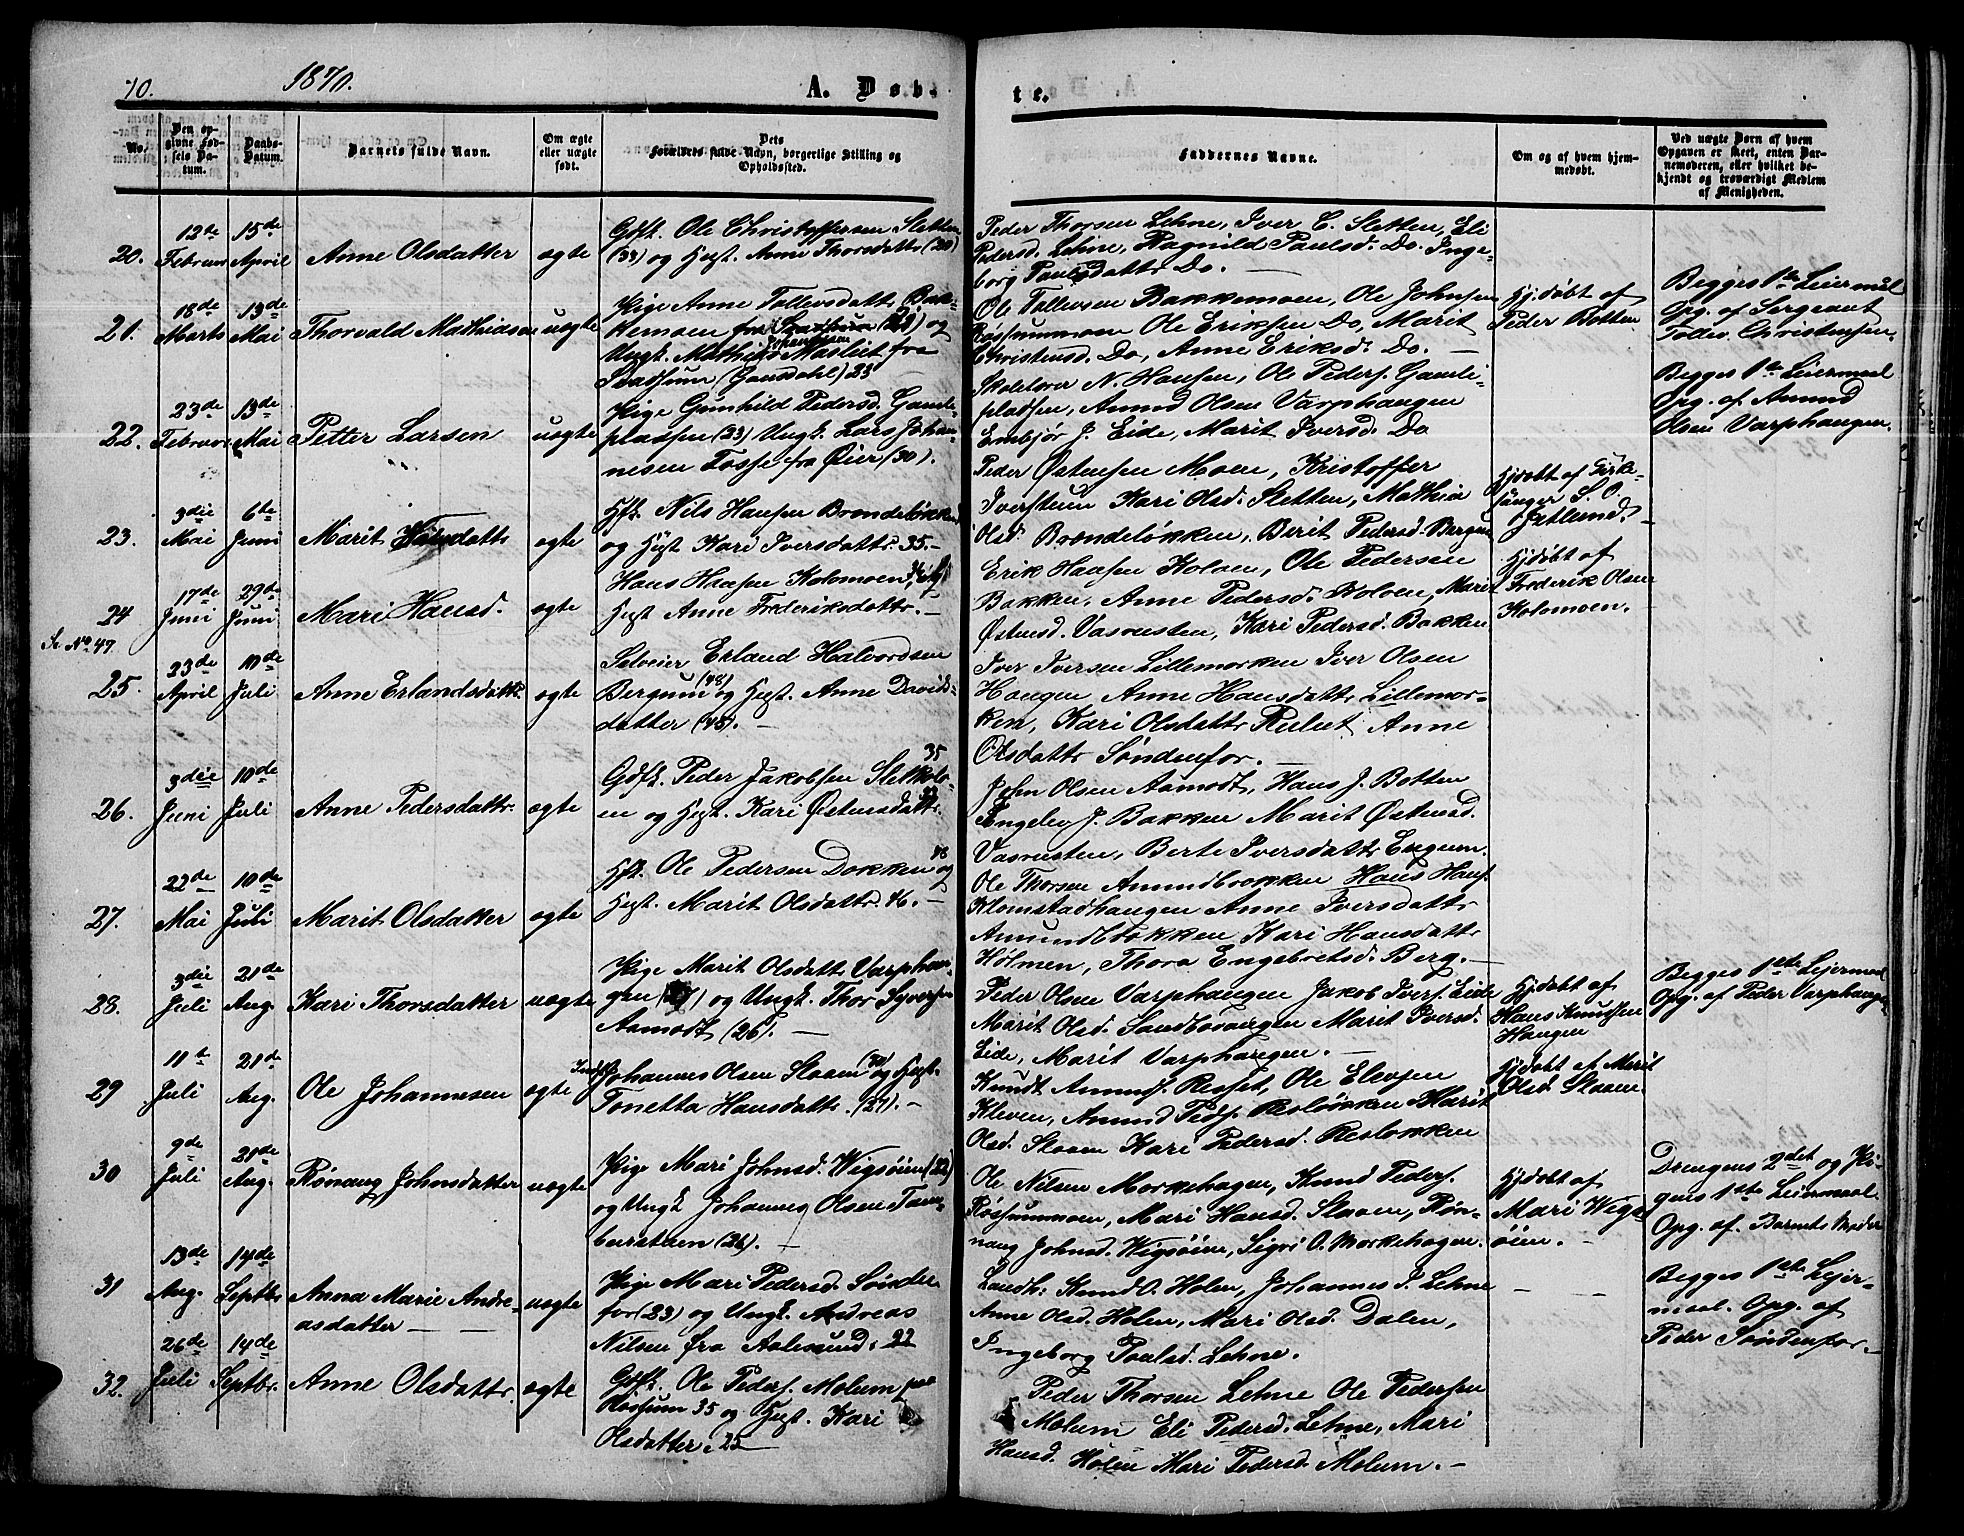 70.
1870.
A. Døb-
te.
No.
Den op-
givne Fød-
sels Da-
tum.
Daabs-
Datum.
Barnets fulde Navn.
Om ægte
eller uægte
født.
Dets
Forældres fulde Navn, borgerlige Stilling og
Opholdssted.
Faddernes Navne.
Om og af hvem hjem-
medøbt.
Ved uægte Børn af hvem
Opgaven er skeet, enten Bar-
nemoderen, eller hvilket be-
kjendt og troværdigt Medlem
af Menigheden.
20.
12te
Februar
15de
April
Anne Olsdatter
ægte
Gift. Ole Christoffersen Sletten
(33) og Hust. Anne Thorsdattr (20)
Peder Thorsen Lehne, Iver C. Sletten, Eli
Pedersd. Lehne, Ragnild Paulsd. Do. Inge-
borg Paulsdattr Do. —
21.
18de
Marts
13de
Mai
Thorvald Mathiasen
uægte
Pige Anne Tollevsdattr Bak-
kemoen fra (22) og
Ungk. Mathias Johannesen Masliet fra
Svatsum (Gausdahl) 23
Ole Tollevsen Bakkemoen, Ole Johnsen
Røssummoen Ole Eriksen Do, Marit
Christensd. Do, Anne Eriksd. Do. —
Hjdøbt af
Peder Botten
Begges 1te Leiermål
Opg. af Sergeant
Peder Christensen.
22.
23de
Februar
13de
Mai
Petter Larsen
uægte
Pige Gunhild Pedersd. Gamle-
pladsen (23) Ungk. Lars Johan-
nesen Fosse fra Øier (30).
Skolelærer N. Hansen, Ole Peders. Gamle-
pladsen, Amund Olsen Varphaugen
Embjør J. Eide, Marit Iversd. Do
Begges 1te Leiermaal
Opg. af Amund
Olsen Varphaugen.
23.
3die
Mai
6te
Juni
Marit Nilsdattr
ægte
Hft. Nils Hansen Brændeløkken
og Hust Kari Iversdattr. 35. —
Peder Østensen Moen, Kristoffer
Iverstuen Kari Olsd. Sletten, Mathia
Olsd. Brændeløkken, Berit Pedersd. Bergum
Hjdøbt af Kirke-
sanger S. O.
Jetlund. —
24
17de
Juni
29de
Juni
Mari Hansd.
ægte
Hans Hansen Kolomoen
Hust Anne Frederiksdattr. —
Erik Hansen Kolven, Ole Pedersen
Bakken, Anne Pedersd. Kolven, Marit
Østensd. Vasrusten, Kari Pedersd. Bakken
Hjdøbt af
Frederik Olsen
Kolomoen.
Se No. 49
25.
23de
April
10de
Juli
Anne Erlandsdattr
ægte
Selveier Erland Halvordsen
Bergum (48) og Hust. Anne Davids-
datter (48). —
Iver Iversen Lillemorken Iver Olsen
Haugen Anne Hansdattr Lillemor-
ken, Kari Olsdattr Rulut Anne
Olsdattr Søndenfor. —
26.
3die
Juni
10de
Juli
Anne Pedersdattr.
ægte
Gdft. Peder Jakobsen Sletkolo- 35
en og Hust. Kari Østensdattr.
John Olsen Aamodt, Hans J. Botten
Engelev J. Bakken Marit Østensd.
Vasrusten, Berte Iversdattr Engum.
27.
22de
Mai
10de
Juli
Marit Olsdatter
ægte
Hft. Ole Pedersen Dokken 48 og
Hust. Marit Olsdattr. 46. —
Ole Thorsen Amundbrækken Hans Hans.
Klomstadhaugen Anne Iversdattr
Amundbrækken Kari Hansdattr
Holmen, Thora Engebretsd. Berg. —
28.
3die
Juli
21de
Aug.
Kari Thorsdatter
uægte
Pige Marit Olsdattr Varphau-
gen ( ) og Ungk. Thor Syversen
Aamodt (26). —
Peder Olsen Varphaugen Jakob Ivers. Eide
Marit Olsd. Sandbovangen Marit Iversd.
Eide, Marit Varphaugen. —
Hjdøbt af
Hans Knudsen
Haugen
Begges 1ste Leiermaal
Opg. af Peder Varphaugen
29
11te
Juli
21de
Aug.
Ole Johannesen
ægte
Johannes Olsen Slaaen og Hust.
Tonetta Hansdattr. (27). —
Knudt Amunds. Resset, Ole Elevsen
Kleven, Amund Peds. Resløkken Marit
Olsd. Slaaen Kari Pedersd. Resløkken
Hjdøbt af Marit
Olsd Slaaen.
30
9de
Juli
21de
Aug.
Rønnaug Johnsdatter
uægte
Pige Mari Johnsd. Wigsøien (22)
og Ungk Johannes Olsen
(26). —
Ole Nilsen Morkehagen, Knud Peders.
Røssummoen, Mari Hansd. Slaaen, Røn-
naug Johnsd. Wigsøien, Sigri O. Morkehagen.
Hjdøbt af
Mari Wigs-
øien. —
Drengens 2det og Pi-
gens 1ste Leiermaal.
Opg. af. Barnets Moder
31
13de
Aug.
14de
Septbr
Anna Marie Andre-
asdatter — —
uægte
Pige Mari Pedersd. Sønden-
for (23) og Ungk. Andreas
Nilsen fra Aalesund. 22
Landh. Knud O. Holen, Johannes P. Lehne
Anne Olsd. Holen, Mari Olsd. Dalen,
Ingeborg Paulsd. Lehne.
Begges 1ste Leier-
maal. Opg. af
Peder Søndenfor. —
32.
26de
Juli
14de
Septbr.
Anne Olsdattr.
ægte
Gdft. Ole Peders. Molum paa
Røssum 35 og Hust. Kari
Olsdatter. 25
Peder Thorsen Lehne Ole Pedersen
Molum Eli Pedersd. Lehne, Mari
Hansd. Holen Mari Pedersd. Molum. —